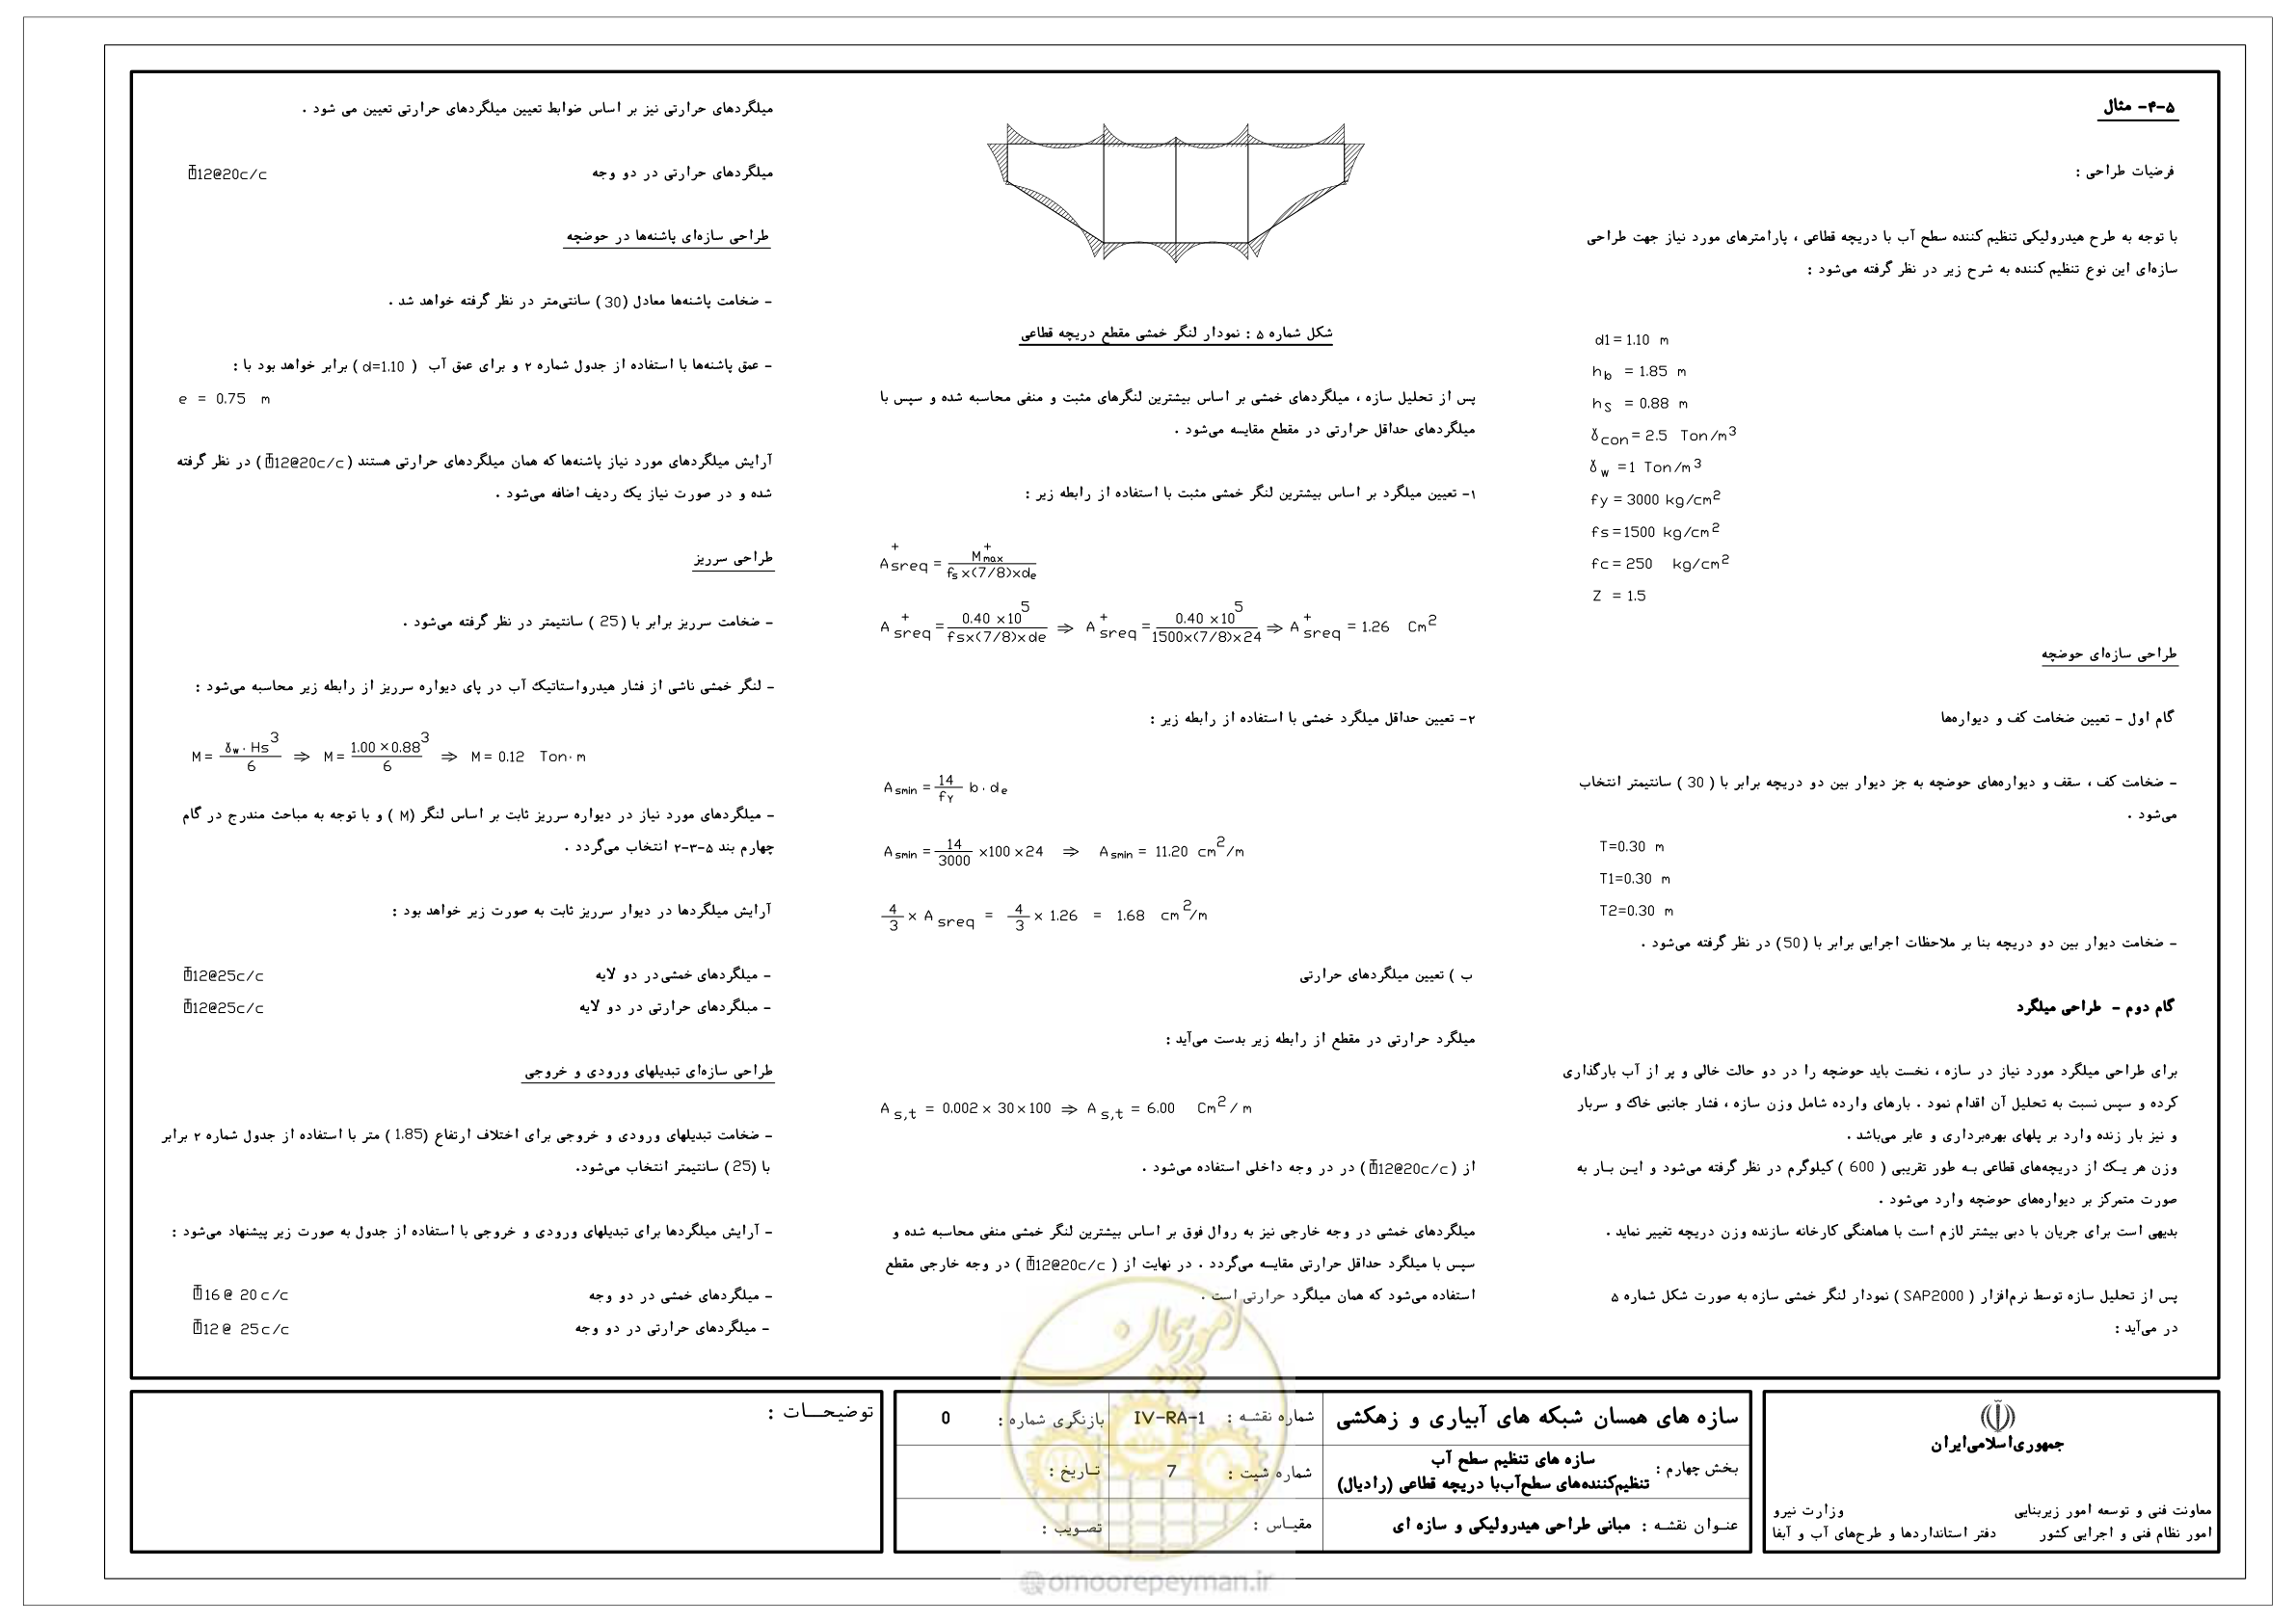 ۵-۴- مثال
فرضیات طراحی :
با توجه به طرح هیدرولیکی تنظیم کننده سطح آب با دریچه قطاعی ، پارامترهای مورد نیاز جهت طراحی
سازه‌ای این نوع تنظیم کننده به شرح زیر در نظر گرفته می‌شود :
d1 = 1.10 m
hb = 1.85 m
hs = 0.88 m
γcon = 2.5 Ton/m3
γw = 1 Ton/m3
fy = 3000 kg/cm2
fs = 1500 kg/cm2
fc = 250 kg/cm2
Z = 1.5
طراحی سازه‌ای حوضچه
گام اول - تعیین ضخامت کف و دیواره‌ها
- ضخامت کف ، سقف و دیواره‌های حوضچه به جز دیوار بین دو دریچه برابر با ( 30 ) سانتیمتر انتخاب
می‌شود .
T=0.30 m
T1=0.30 m
T2=0.30 m
- ضخامت دیوار بین دو دریچه بنا بر ملاحظات اجرایی برابر با (50) در نظر گرفته می‌شود .
گام دوم - طراحی میلگرد
برای طراحی میلگرد مورد نیاز در سازه ، نخست باید حوضچه را در دو حالت خالی و پر از آب بارگذاری
کرده و سپس نسبت به تحلیل آن اقدام نمود . بارهای وارده شامل وزن سازه ، فشار جانبی خاک و سربار
و نیز بار زنده وارد بر پلهای بهره‌برداری و عابر می‌باشد .
وزن هر یک از دریچه‌های قطاعی به طور تقریبی ( 600 ) کیلوگرم در نظر گرفته می‌شود و این بار به
صورت متمرکز بر دیواره‌های حوضچه وارد می‌شود .
بدیهی است برای جریان با دبی بیشتر لازم است با هماهنگی کارخانه سازنده وزن دریچه تغییر نماید .
پس از تحلیل سازه توسط نرم‌افزار ( SAP2000 ) نمودار لنگر خمشی سازه به صورت شکل شماره ۵
در می‌آید :
شکل شماره ۵ : نمودار لنگر خمشی مقطع دریچه قطاعی
پس از تحلیل سازه ، میلگردهای خمشی بر اساس بیشترین لنگرهای مثبت و منفی محاسبه شده و سپس با
میلگردهای حداقل حرارتی در مقطع مقایسه می‌شود .
۱- تعیین میلگرد بر اساس بیشترین لنگر خمشی مثبت با استفاده از رابطه زیر :
A+sreq = M+max / fs x(7/8)xde
A+sreq = 0.40 x10^5 / fsx(7/8)xde ⇒ A+sreq = 0.40 x10^5 / 1500x(7/8)x24 ⇒ A+sreq = 1.26 Cm2
۲- تعیین حداقل میلگرد خمشی با استفاده از رابطه زیر :
Asmin = 14/fy b . de
Asmin = 14/3000 x100 x24 ⇒ Asmin = 11.20 cm2/m
4/3 x A sreq = 4/3 x 1.26 = 1.68 cm2/m
ب ) تعیین میلگردهای حرارتی
میلگرد حرارتی در مقطع از رابطه زیر بدست می‌آید :
A s,t = 0.002 x 30x100 ⇒ A s,t = 6.00 Cm2 / m
از ( Φ12@20c/c ) در در وجه داخلی استفاده می‌شود .
میلگردهای خمشی در وجه خارجی نیز به روال فوق بر اساس بیشترین لنگر خمشی منفی محاسبه شده و
سپس با میلگرد حداقل حرارتی مقایسه می‌گردد . در نهایت از ( Φ12@20c/c ) در وجه خارجی مقطع
استفاده می‌شود که همان میلگرد حرارتی است .
میلگردهای حرارتی نیز بر اساس ضوابط تعیین میلگردهای حرارتی تعیین می شود .
میلگردهای حرارتی در دو وجه Φ12@20c/c
طراحی سازه‌ای پاشنه‌ها در حوضچه
- ضخامت پاشنه‌ها معادل ( 30 ) سانتی‌متر در نظر گرفته خواهد شد .
- عمق پاشنه‌ها با استفاده از جدول شماره ۲ و برای عمق آب ( d=1.10 ) برابر خواهد بود با :
e = 0.75 m
آرایش میلگردهای مورد نیاز پاشنه‌ها که همان میلگردهای حرارتی هستند ( Φ12@20c/c ) در نظر گرفته
شده و در صورت نیاز یک ردیف اضافه می‌شود .
طراحی سرریز
- ضخامت سرریز برابر با ( 25 ) سانتیمتر در نظر گرفته می‌شود .
- لنگر خمشی ناشی از فشار هیدرواستاتیک آب در پای دیواره سرریز از رابطه زیر محاسبه می‌شود :
M = γw . Hs^3 / 6 ⇒ M = 1.00 x 0.88^3 / 6 ⇒ M = 0.12 Ton.m
- میلگردهای مورد نیاز در دیواره سرریز ثابت بر اساس لنگر ( M ) و با توجه به مباحث مندرج در گام
چهارم بند ۵-۳-۲ انتخاب می‌گردد .
آرایش میلگردها در دیوار سرریز ثابت به صورت زیر خواهد بود :
- میلگردهای خمشی در دو لایه Φ12@25c/c
- مبلگردهای حرارتی در دو لایه Φ12@25c/c
طراحی سازه‌ای تبدیلهای ورودی و خروجی
- ضخامت تبدیلهای ورودی و خروجی برای اختلاف ارتفاع ( 1.85 ) متر با استفاده از جدول شماره ۲ برابر
با ( 25 ) سانتیمتر انتخاب می‌شود.
- آرایش میلگردها برای تبدیلهای ورودی و خروجی با استفاده از جدول به صورت زیر پیشنهاد می‌شود :
- میلگردهای خمشی در دو وجه Φ16 @ 20 c/c
- میلگردهای حرارتی در دو وجه Φ12 @ 25 c/c
جمهوری اسلامی ایران
معاونت فنی و توسعه امور زیربنایی وزارت نیرو
امور نظام فنی و اجرایی کشور دفتر استانداردها و طرح‌های آب و آبفا
سازه های همسان شبکه های آبیاری و زهکشی
بخش چهارم : سازه های تنظیم سطح آب
تنظیم‌کننده‌های سطح‌آب‌با دریچه قطاعی (رادیال)
عنـوان نقشـه : مبانی طراحی هیدرولیکی و سازه ای
شماره نقشـه : IV-RA-1
شماره شیت : 7
مقیـاس :
بازنگری شماره : 0
تـاریخ :
تصـویب :
توضیحـــات :
امورپیمان
@omoorepeyman.ir